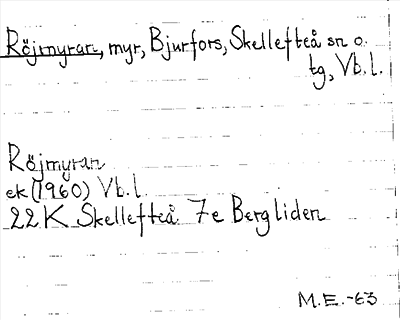 Röjmyran, myr, Bjurfors, Skellefteå sn o.
tg, Vb.l.
Röjmyran
ek (1960) Vb.l.
22 K Skellefteå 7e Bergliden
M.E.-63